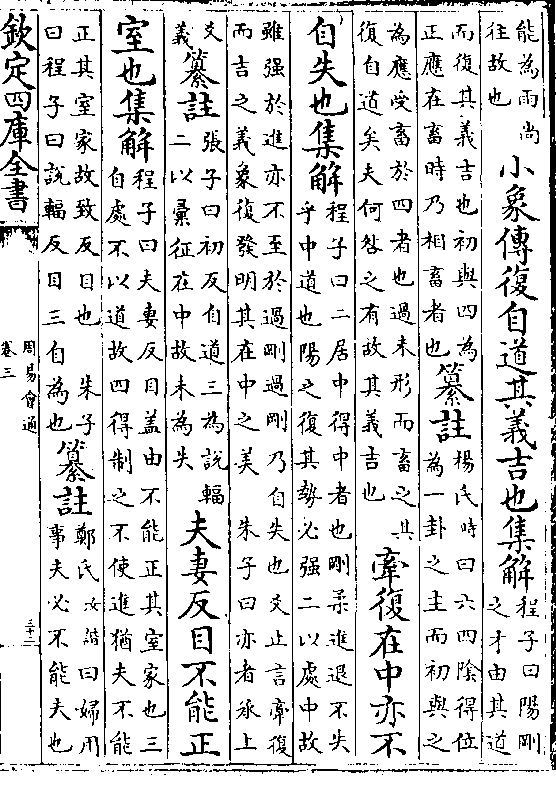 能為雨尚
往故也
小象傳復自道其義吉也集解
程子曰陽剛
之才由其道
而復其義吉也初與四為
正應在畜時乃相畜者也
纂註
楊氏時曰六四陰得位
為一卦之主而初與之
為應受畜於四者也過未形而畜之其
復自道矣夫何咎之有故其義吉也
牽復在中亦不
自失也集解
程子曰二居中得中者也剛柔進退不失
乎中道也陽之復其勢必强二以處中故
雖强於進亦不至於過剛過剛乃自失也爻止言牽復
而吉之義象復發明其在中之美 朱子曰亦者承上
爻
義
纂註
張子曰初反自道三為說輻
二以彚征在中故未為失
夫妻反目不能正
室也集解
程子曰夫妻反目盖由不能正其室家也三
自處不以道故四得制之不使進猶夫不能
正其室家故致反目也 朱子
曰程子曰說輻反目三自為也
纂註
鄭氏汝諧曰婦用
事夫必不能夫也
欽定四庫全書
周易會通
卷三
三十三